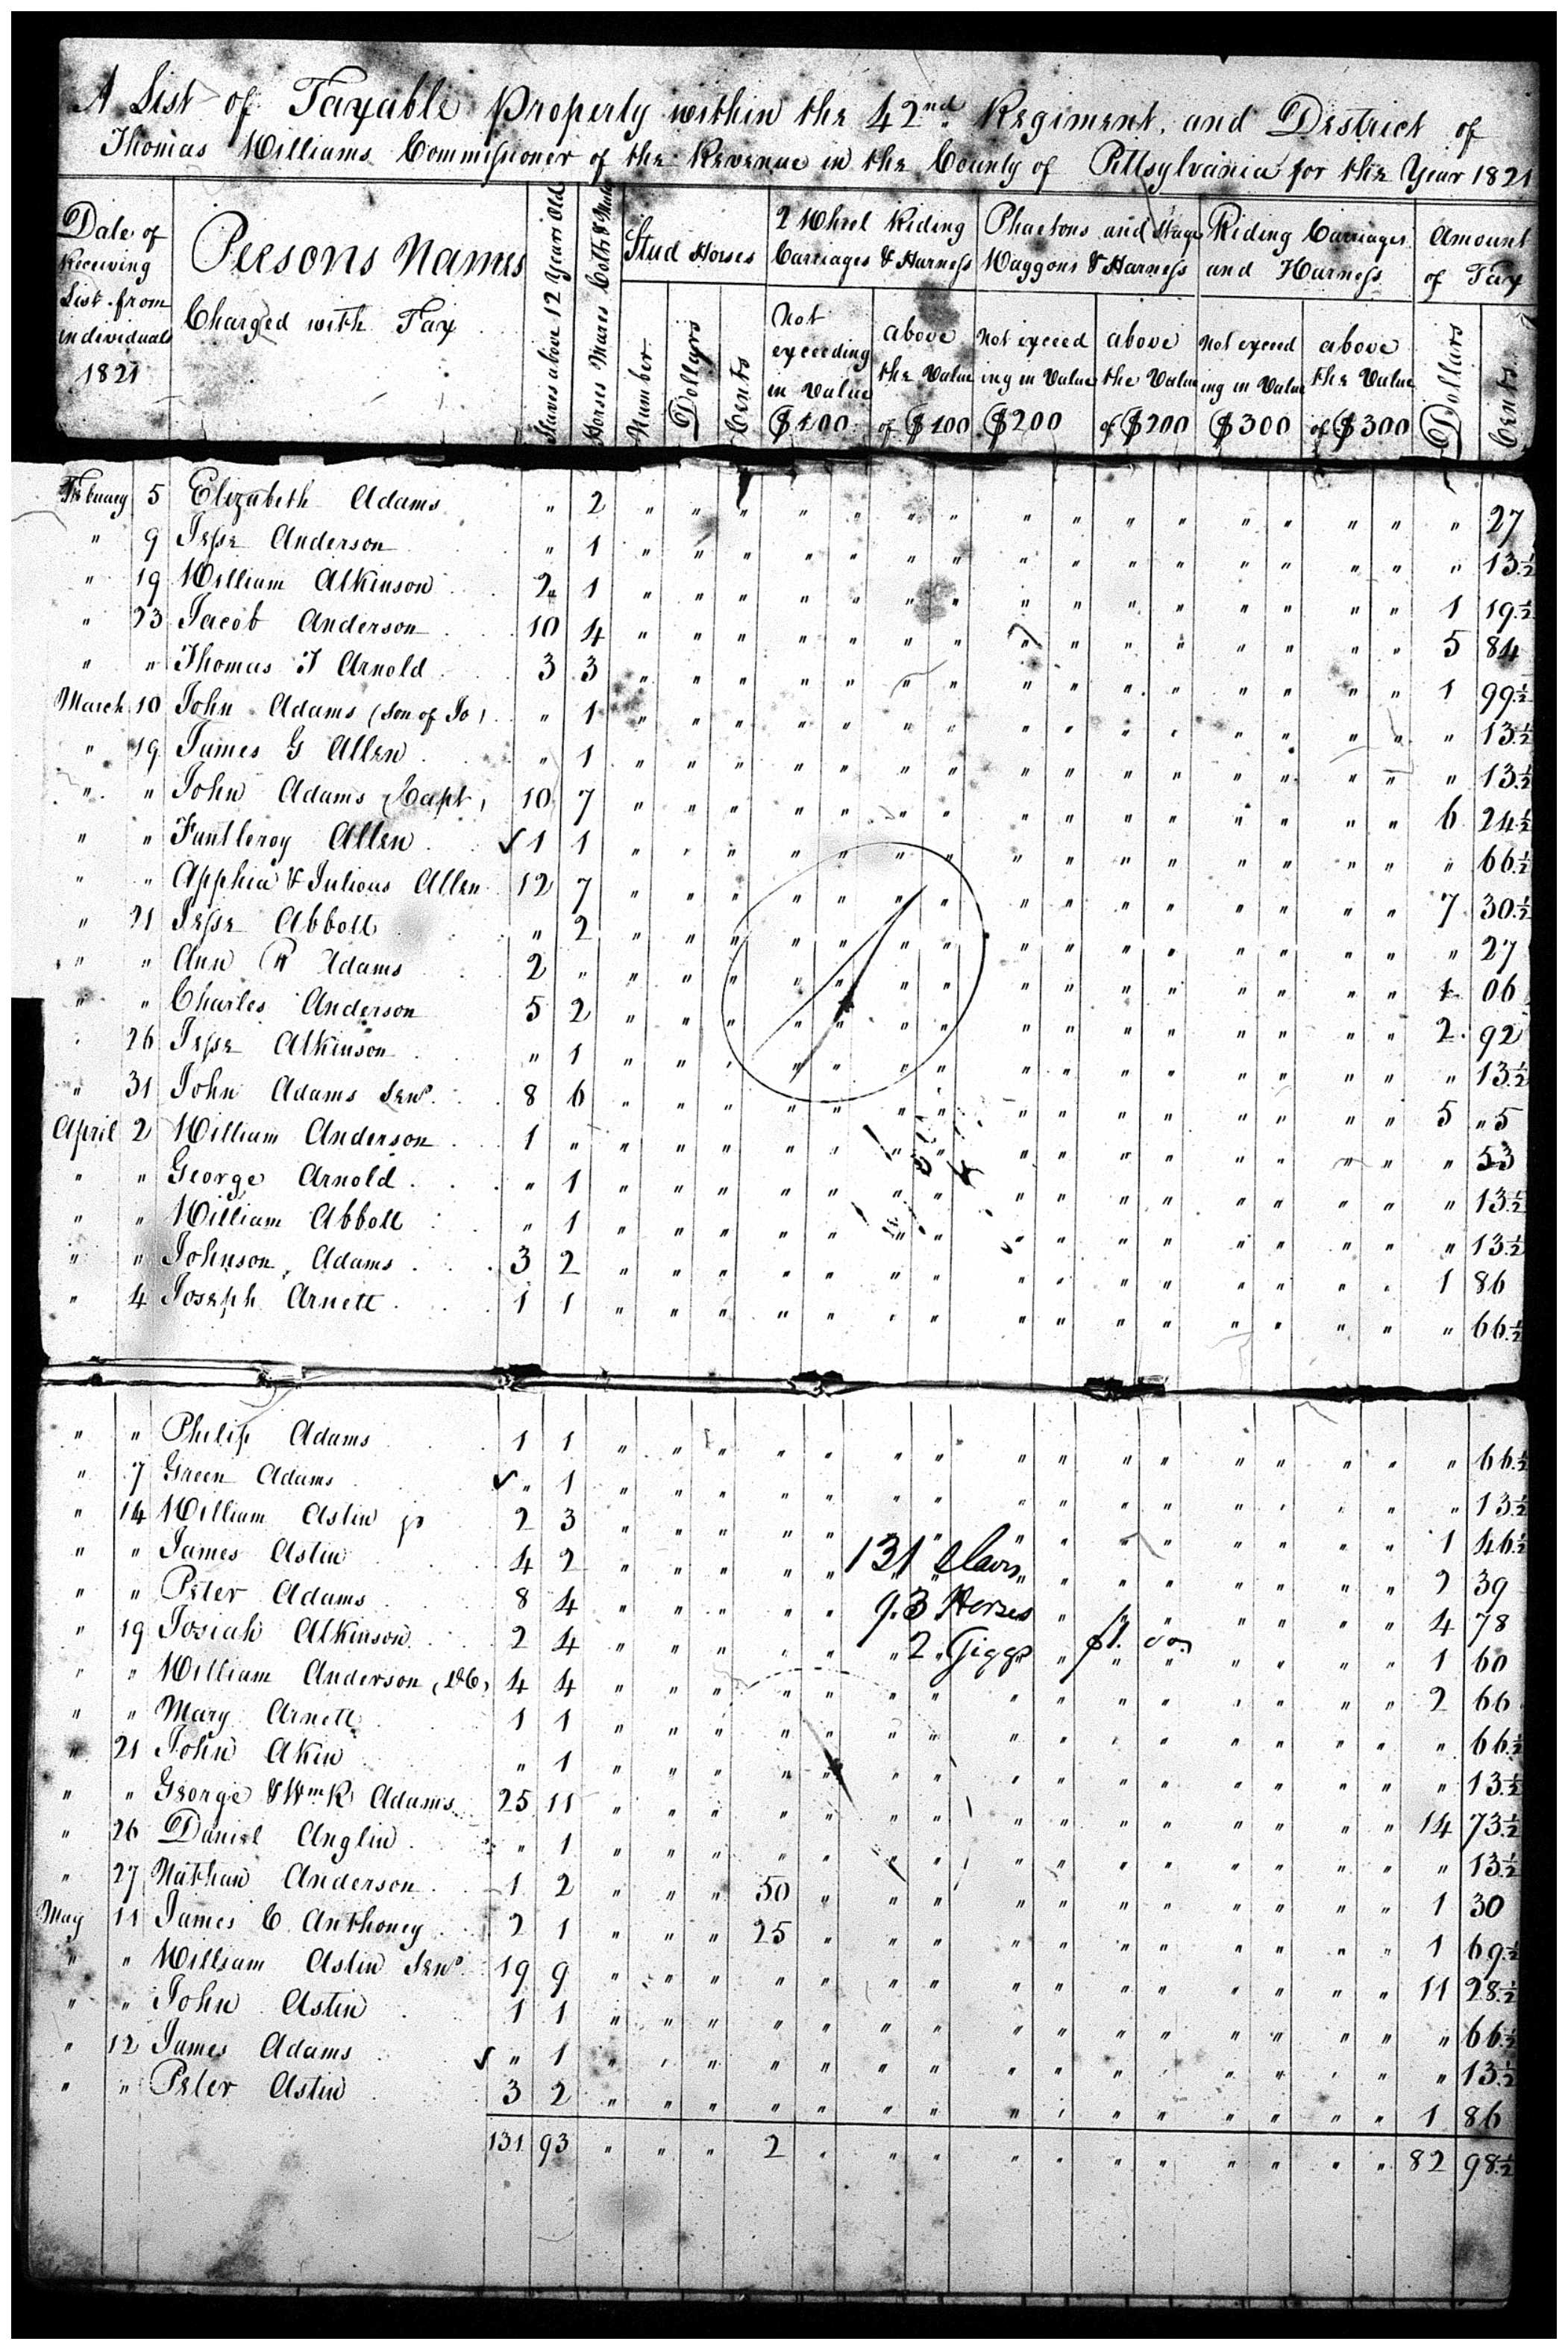 A List of Taxable Property within the 42nd Regiment, and District of
Thomas Williams Commissioner of the Revenue in the County of Pittsylvania for the Year 1821
Date of Receiving List from individuals 1821
Persons Names Charged with Tax
Slaves above 12 Years Old
Horses Mares Colts & Mules
Stud Horses
Number
Dollars
Cents
2 Wheel Riding Carriages & Harness
Not exceeding in Value $100
above the Value of $100
Phaetons and Stage Waggons & Harness
Not exceeding in Value $200
above the Value of $200
Riding Carriages and Harness
Not exceeding in Value $300
above the Value of $300
Amount of Tax
Dollars
Cents
February 5 Elizabeth Adams " 2 " 27
" 9 Jesse Anderson " 1 " 13½
" 19 William Atkinson 2 1 1 19½
" 23 Jacob Anderson 10 4 5 84
" " Thomas T Arnold 3 3 1 99½
March 10 John Adams (Son of Jo) " 1 " 13½
" 19 James G Allen " 1 " 13½
" " John Adams (Capt) 10 7 6 24½
" " Fantleroy Allen ✓ 1 1 " 66½
" " Apphia & Julious Allen 12 7 7 30½
" 21 Jesse Abbott " 2 " 27
" " Ann R Adams 2 " 1 06
" " Charles Anderson 5 2 2 92
" 26 Jesse Atkinson " 1 " 13½
" 31 John Adams Senr 8 6 5 "5
April 2 William Anderson 1 " " 53
" " George Arnold " 1 " 13½
" " William Abbott " 1 " 13½
" " Johnson Adams 3 2 1 86
" 4 Joseph Arnett 1 1 " 66½
" " Philip Adams 1 1 " 66½
" 7 Green Adams ✓ " 1 " 13½
" 14 William Astin jr 2 3 1 46½
" " James Astin 4 2 2 39
" " Peter Adams 8 4 4 78
" 19 Josiah Atkinson 2 4 1 60
" " William Anderson 4 4 2 66
" " Mary Arnett 1 1 " 66½
" 21 John Akin " 1 " 13½
" " George & Wm R Adams 25 11 14 73½
" 26 Daniel Anglin " 1 " 13½
" 27 Nathan Anderson 1 2 50 1 30
May 11 James C Anthoney 2 1 25 1 69½
" " William Astin Senr 19 9 11 28½
" " John Astin 1 1 " 66½
" 12 James Adams ✓ " 1 " 13½
" " Peter Astin 3 2 1 86
131 93 2 82 98½
131 Slaves
93 Horses
2 Giggs